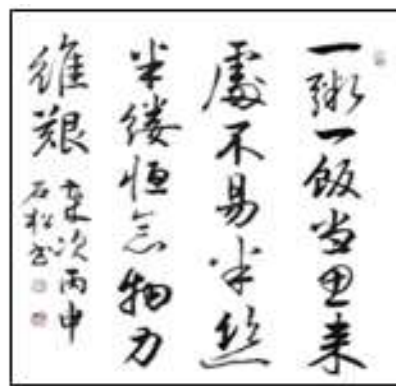 一粥一飯当思来
處不易半丝
半缕恒念物力
維艱
歲次丙申
石松书